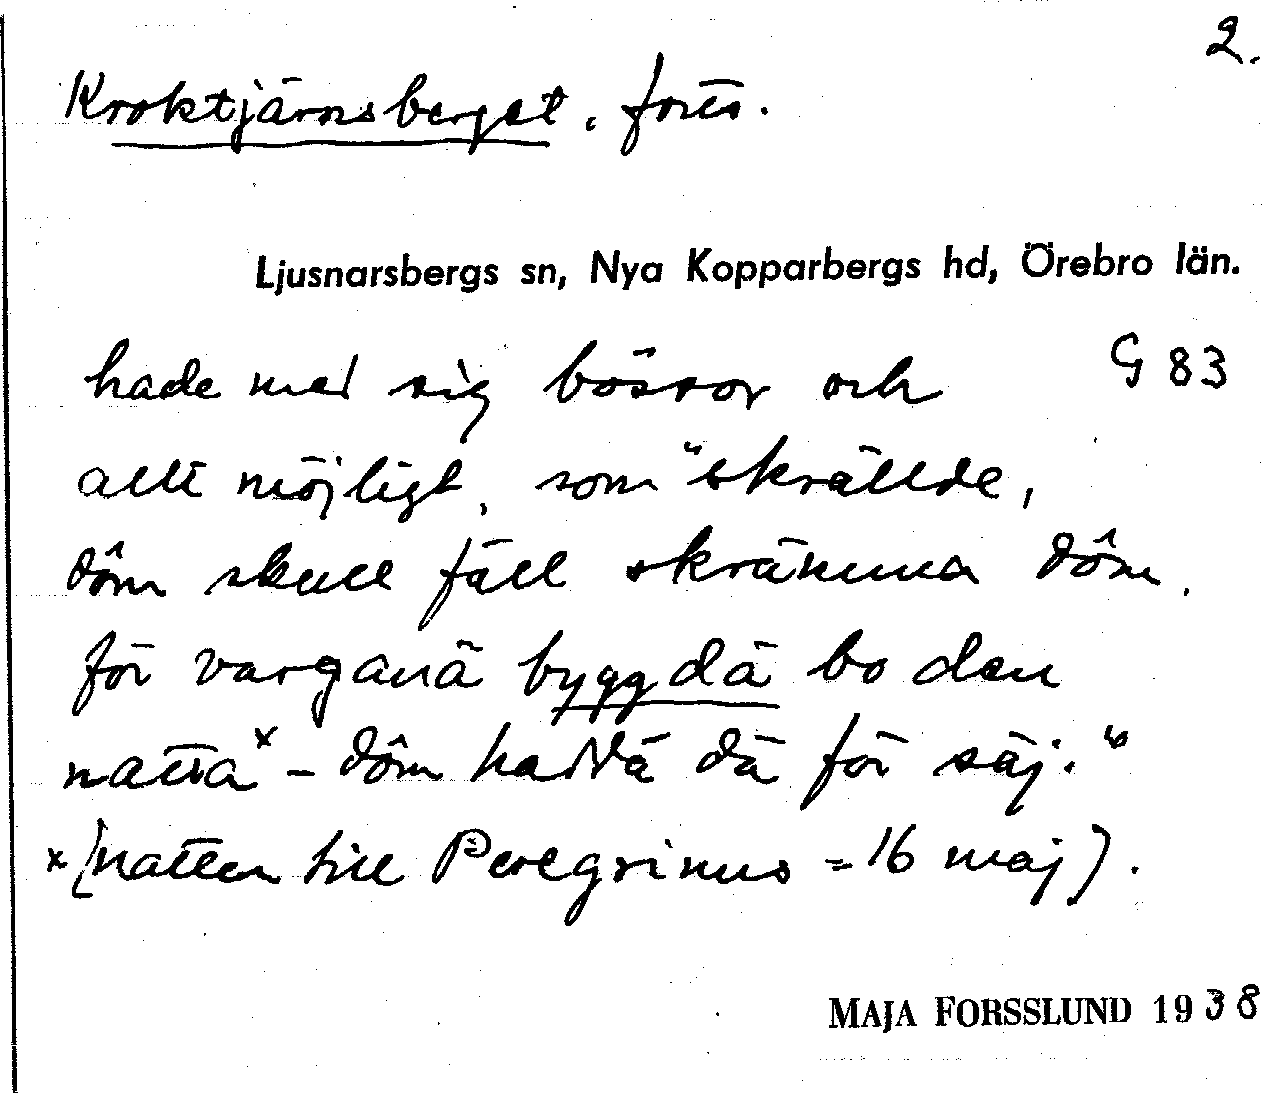 2.
Kroktjärnsberget, forts.
Ljusnarsbergs sn, Nya Kopparbergs hd, Örebro län.
hade med sig bössor och G 83
allt möjligt, som "skrällde,
dôm skull fäll skrämma dôm,
för varganä byggdä bo den
natta x – dôm haddä dä för säj."
x (natten till Peregrinus = 16 maj).
MAJA FORSSLUND 1938